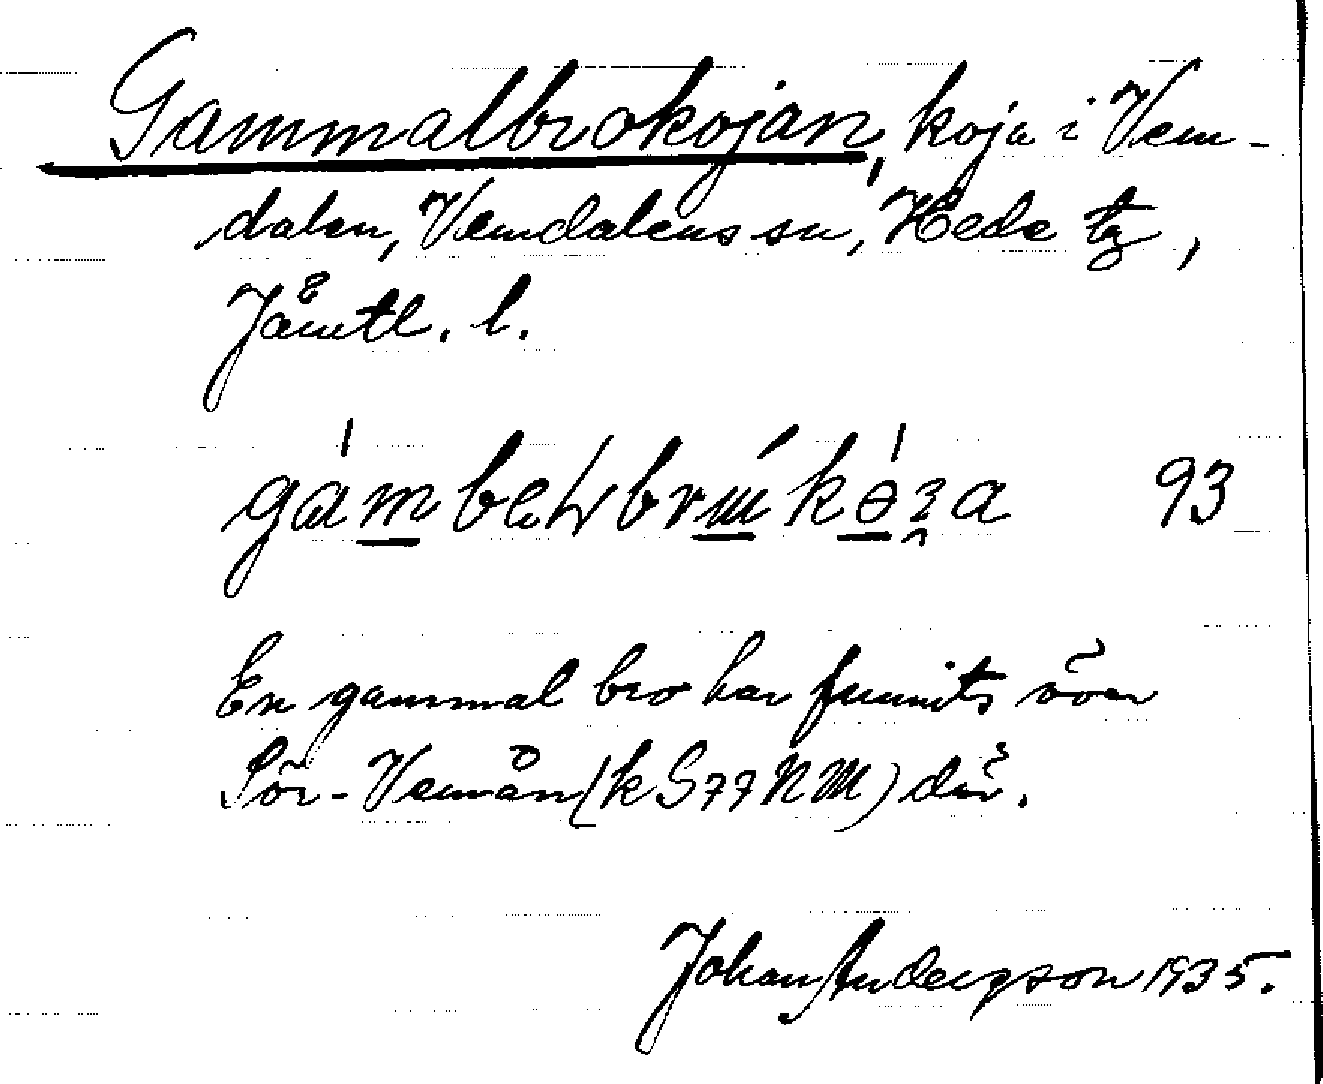 Gammalbrokojan, koja i Vem-
dalen, Vemdalens sn, Hede tg,
Jämtl. l.
93
En gammal bro har funnits över
Sör-Vemån (k S77 NM) där.
Johan Andersson 1935.